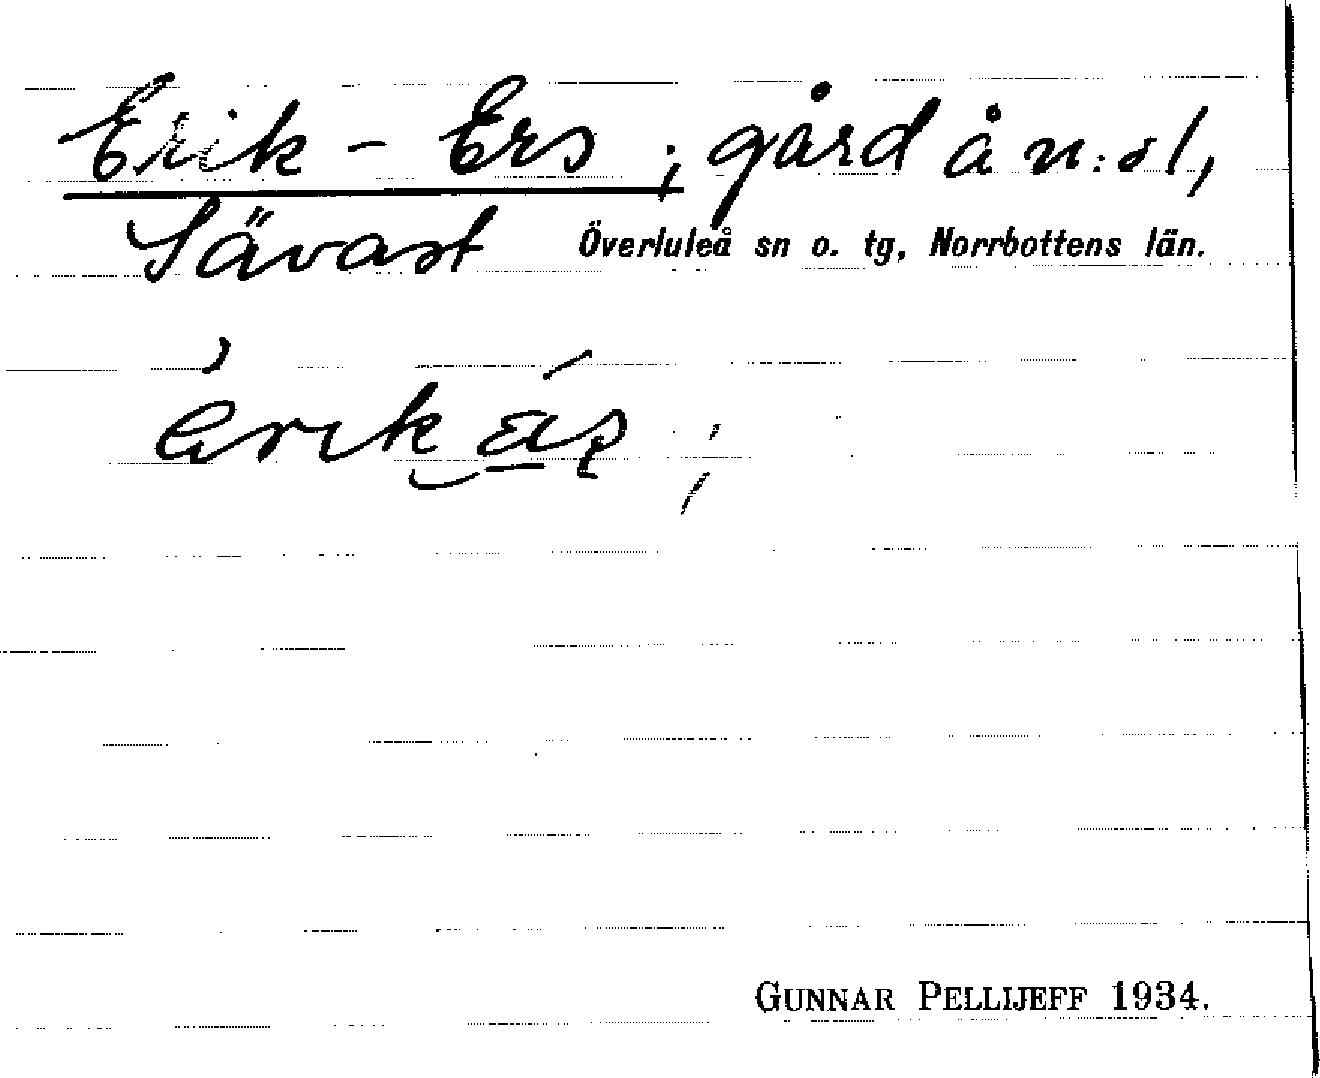 Erik-Ers; gård å n:o 1,
Sävast Överluleå sn o. tg, Norrbottens län.
GUNNAR PELLIJEFF 1934.